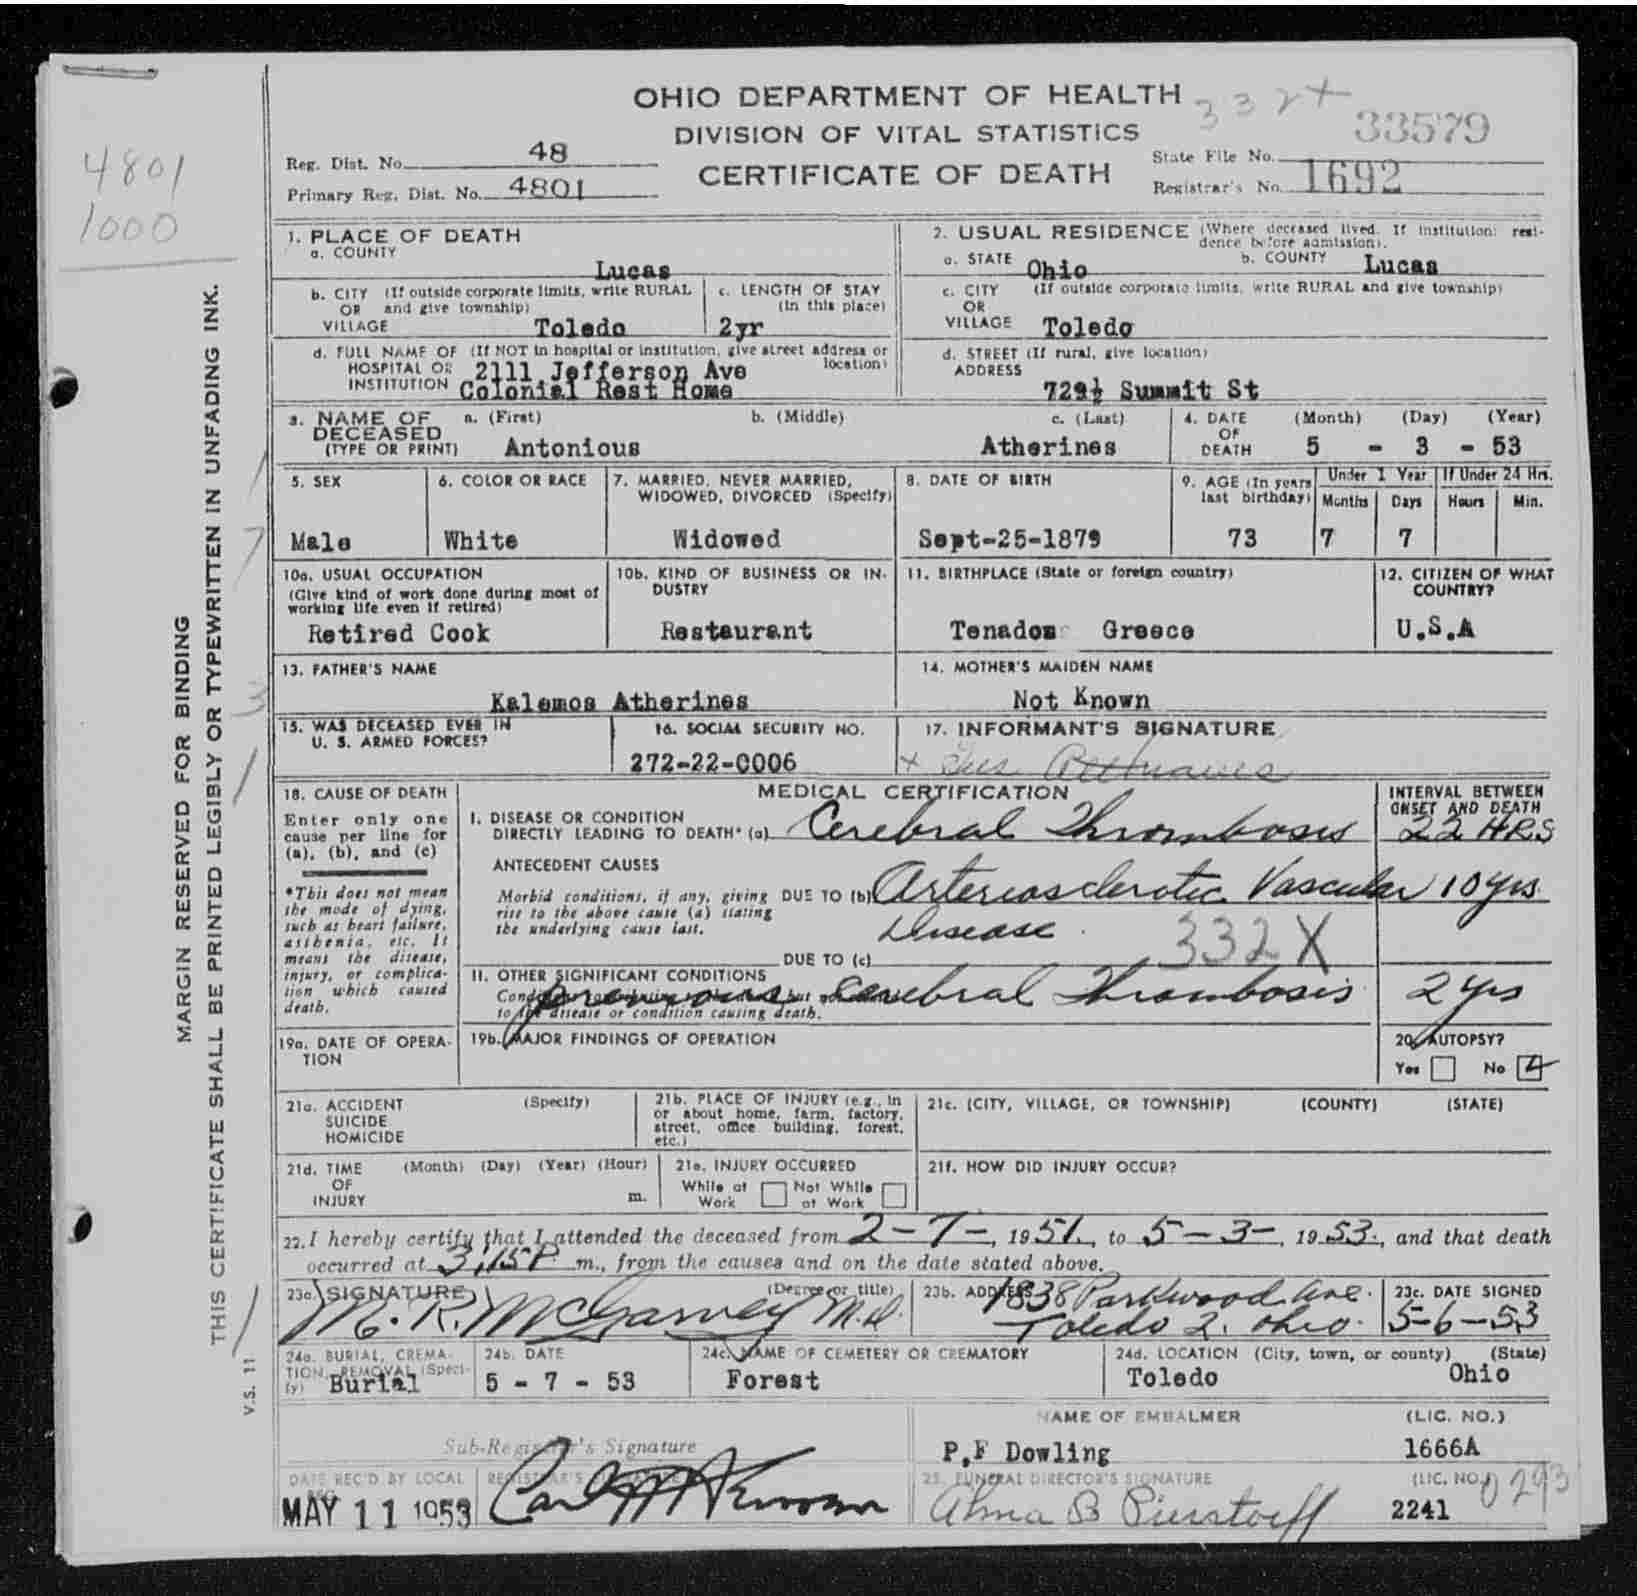 OHIO DEPARTMENT OF HEALTH
DIVISION OF VITAL STATISTICS
CERTIFICATE OF DEATH
4801
1000
Reg. Dist. No. 48
Primary Reg. Dist. No. 4801
332+
33579
State File No.
Registrar's No. 1692
MARGIN RESERVED FOR BINDING
THIS CERTIFICATE SHALL BE PRINTED LEGIBLY OR TYPEWRITTEN IN UNFADING INK.
V.S. 11
1. PLACE OF DEATH
a. COUNTY
Lucas
2. USUAL RESIDENCE (Where deceased lived. If institution: resi-
dence before admission).
a. STATE Ohio b. COUNTY Lucas
b. CITY (If outside corporate limits, write RURAL
OR and give township)
VILLAGE Toledo
c. LENGTH OF STAY
(in this place)
2yr
c. CITY (If outside corporate limits, write RURAL and give township)
OR
VILLAGE Toledo
d. FULL NAME OF (If NOT in hospital or institution, give street address or
HOSPITAL OR 2111 Jefferson Ave location)
INSTITUTION Colonial Rest Home
d. STREET (If rural, give location)
ADDRESS
729½ Summit St
3. NAME OF a. (First) b. (Middle) c. (Last)
DECEASED
(TYPE OR PRINT) Antonious Atherines
4. DATE (Month) (Day) (Year)
OF
DEATH 5 - 3 - 53
5. SEX
Male
6. COLOR OR RACE
White
7. MARRIED, NEVER MARRIED,
WIDOWED, DIVORCED (Specify)
Widowed
8. DATE OF BIRTH
Sept-25-1879
9. AGE (In years
last birthday)
73
Under 1 Year If Under 24 Hrs.
Months Days Hours Min.
7 7
10a. USUAL OCCUPATION
(Give kind of work done during most of
working life even if retired)
Retired Cook
10b. KIND OF BUSINESS OR IN-
DUSTRY
Restaurant
11. BIRTHPLACE (State or foreign country)
Tenados Greece
12. CITIZEN OF WHAT
COUNTRY?
U.S.A
13. FATHER'S NAME
Kalemos Atherines
14. MOTHER'S MAIDEN NAME
Not Known
15. WAS DECEASED EVER IN
U. S. ARMED FORCES?
16. SOCIAL SECURITY NO.
272-22-0006
17. INFORMANT'S SIGNATURE
+ Gus
18. CAUSE OF DEATH
Enter only one
cause per line for
(a), (b), and (c)
*This does not mean
the mode of dying,
such as heart failure,
asthenia, etc. It
means the disease,
injury, or complica-
tion which caused
death.
MEDICAL CERTIFICATION
INTERVAL BETWEEN
ONSET AND DEATH
I. DISEASE OR CONDITION
DIRECTLY LEADING TO DEATH* (a) Cerebral Thrombosis 22 HRS
ANTECEDENT CAUSES
Morbid conditions, if any, giving DUE TO (b) Arteriosclerotic Vascular 10 yrs.
rise to the above cause (a) stating
the underlying cause last. Disease.
332X
DUE TO (c)
II. OTHER SIGNIFICANT CONDITIONS
Conditions contributing to the death but not
previous Cerebral Thrombosis 2 yrs
to the disease or condition causing death.
19a. DATE OF OPERA-
TION
19b. MAJOR FINDINGS OF OPERATION
20. AUTOPSY?
Yes No
21a. ACCIDENT (Specify)
SUICIDE
HOMICIDE
21b. PLACE OF INJURY (e.g., in
or about home, farm, factory,
street, office building, forest,
etc.)
21c. (CITY, VILLAGE, OR TOWNSHIP) (COUNTY) (STATE)
21d. TIME (Month) (Day) (Year) (Hour)
OF
INJURY m.
21e. INJURY OCCURRED
While at Not While
Work at Work
21f. HOW DID INJURY OCCUR?
22. I hereby certify that I attended the deceased from 2-7-, 1951., to 5-3-, 1953., and that death
occurred at 3:15 P. m., from the causes and on the date stated above.
23a. SIGNATURE (Degree or title)
M. R. McGarvey M.D.
23b. ADDRESS 1838 Parkwood Ave.
Toledo 2. Ohio.
23c. DATE SIGNED
5-6-53
24a. BURIAL, CREMA-
TION, REMOVAL (Speci-
fy) Burial
24b. DATE
5 - 7 - 53
24c. NAME OF CEMETERY OR CREMATORY
Forest
24d. LOCATION (City, town, or county) (State)
Toledo Ohio
Sub-Registrar's Signature
NAME OF EMBALMER (LIC. NO.)
P.F Dowling 1666A
DATE REC'D BY LOCAL
REG.
MAY 11 1953
REGISTRAR'S SIGNATURE
25. FUNERAL DIRECTOR'S SIGNATURE (LIC. NO.)
Alma B Pierstorff 2241
0293